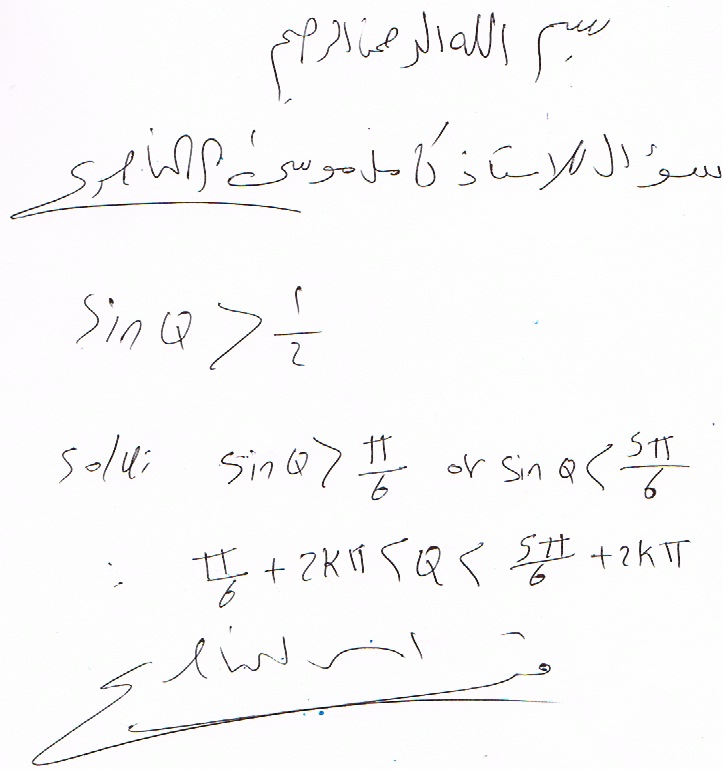 بسم الله الرحمن الرحيم
سؤال للاستاذ كامل موسى الناصري
Sin Q > 1/2
Solu: Sin Q > π/6 or Sin Q < 5π/6
∴ π/6 + 2Kπ < Q < 5π/6 + 2Kπ
الناصري